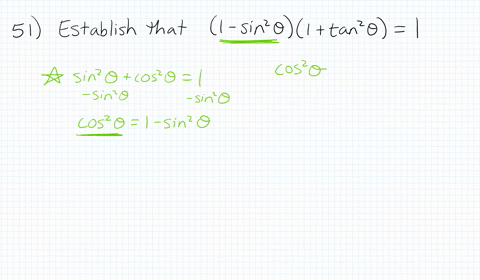 51) Establish that (1-sin²θ)(1+tan²θ)=1
☆ sin²θ+cos²θ=1
cos²θ
-sin²θ -sin²θ
cos²θ=1-sin²θ